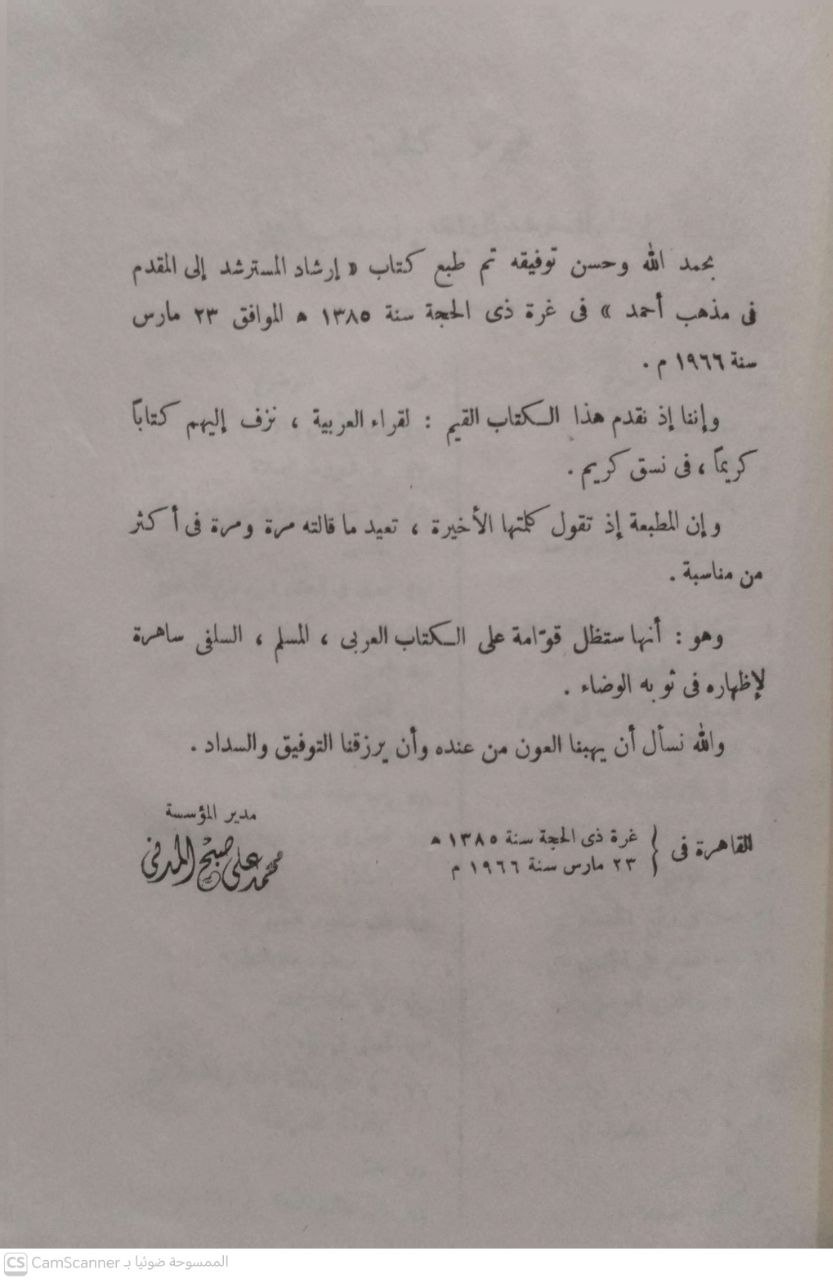 بحمد الله وحسن توفيقه تم طبع كتاب « إرشاد المسترشد إلى المقدم
فى مذهب أحمد » فى غرة ذى الحجة سنة ١٣٨٥ ﻫ الموافق ٢٣ مارس
سنة ١٩٦٦ م .
وإننا إذ نقدم هذا الكتاب القيم : لقراء العربية ، نزف إليهم كتاباً
كريماً ، فى نسق كريم .
وإن المطبعة إذ تقول كلمتها الأخيرة ، تعيد ما قالته مرة ومرة فى أكثر
من مناسبة .
وهو : أنها ستظل قوّامة على الكتاب العربى ، المسلم ، السلفى ساهرة
لإظهاره فى ثوبه الوضاء .
والله نسأل أن يهبنا العون من عنده وأن يرزقنا التوفيق والسداد .
القاهرة فى { غرة ذى الحجة سنة ١٣٨٥ ﻫ
٢٣ مارس سنة ١٩٦٦ م
مدير المؤسسة
محمد على صبح المدنى
CS CamScanner الممسوحة ضوئيا بـ